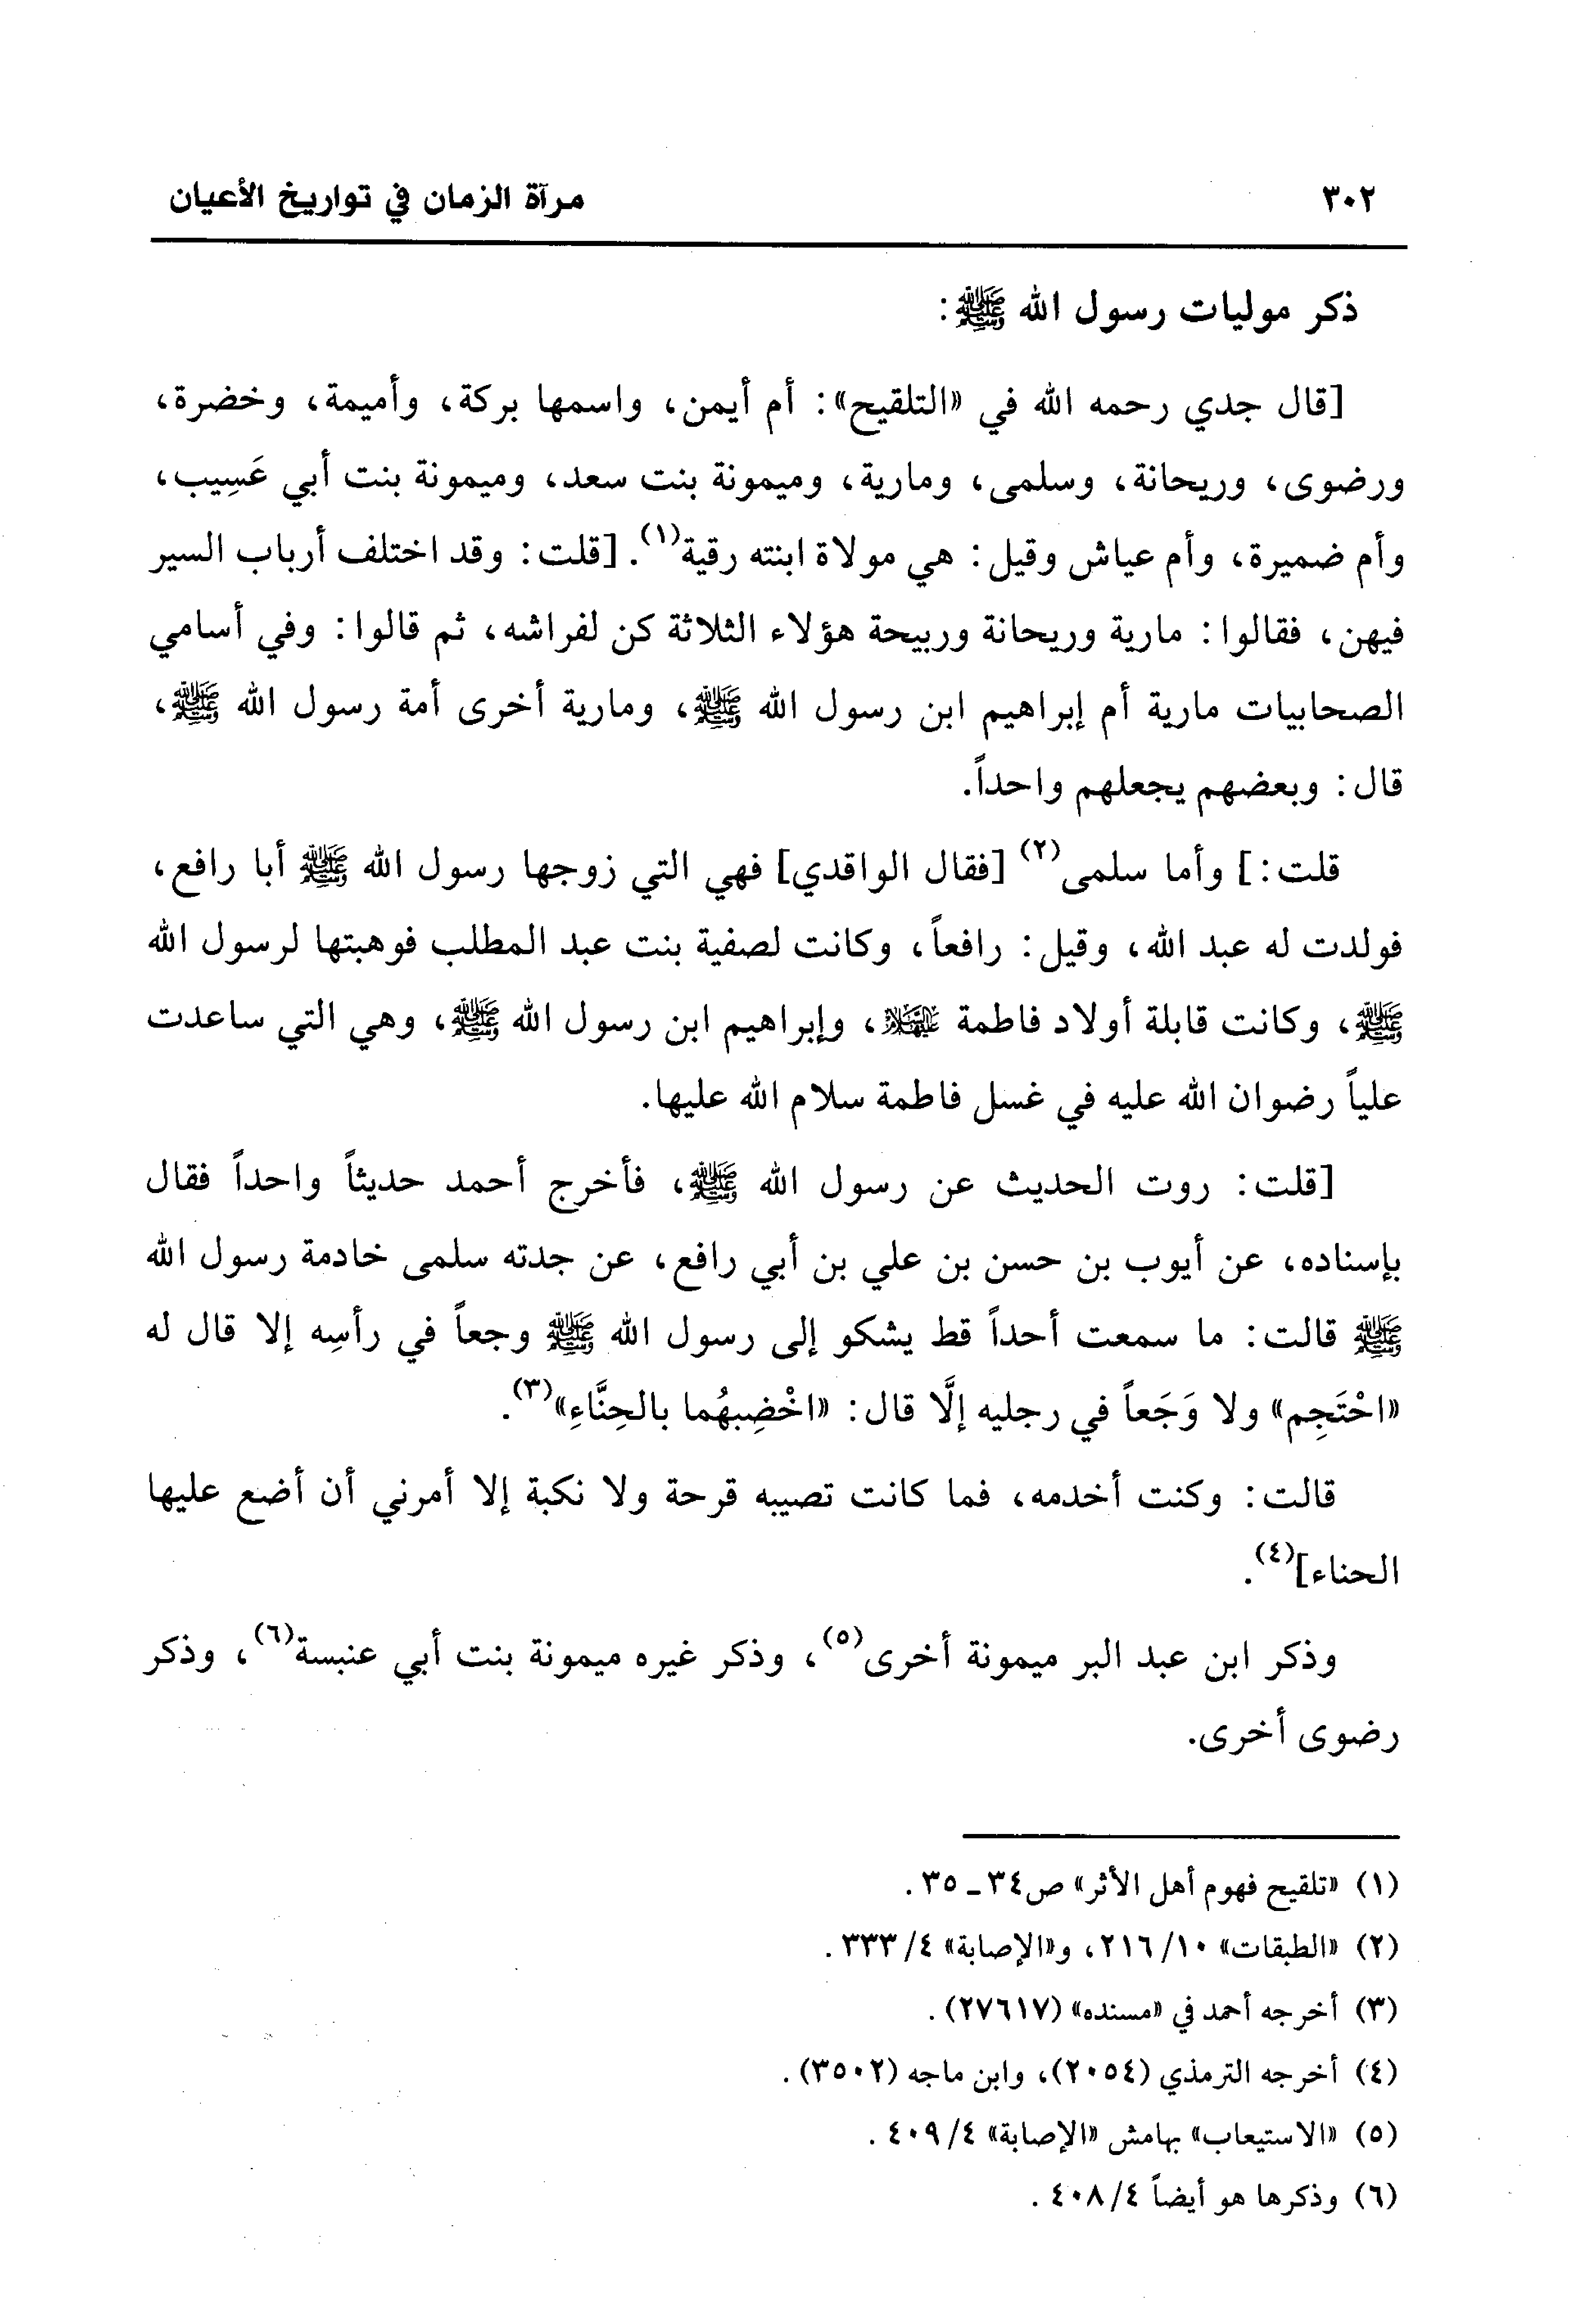 ٣٠٢
مرآة الزمان في تواريخ الأعيان
ذكر موليات رسول الله ﷺ:
[قال جدي رحمه الله في «التلقيح»: أم أيمن، واسمها بركة، وأميمة، وخضرة،
ورضوى، وريحانة، وسلمى، ومارية، وميمونة بنت سعد، وميمونة بنت أبي عَسِيب،
وأم ضميرة، وأم عياش وقيل: هي مولاة ابنته رقية(١). [قلت: وقد اختلف أرباب السير
فيهن، فقالوا: مارية وريحانة وربيحة هؤلاء الثلاثة كن لفراشه، ثم قالوا: وفي أسامي
الصحابيات مارية أم إبراهيم ابن رسول الله ﷺ، ومارية أخرى أمة رسول الله ﷺ،
قال: وبعضهم يجعلهم واحداً.
قلت:] وأما سلمى(٢) [فقال الواقدي] فهي التي زوجها رسول الله ﷺ أبا رافع،
فولدت له عبد الله، وقيل: رافعاً، وكانت لصفية بنت عبد المطلب فوهبتها لرسول الله
ﷺ، وكانت قابلة أولاد فاطمة عليها السلام، وإبراهيم ابن رسول الله ﷺ، وهي التي ساعدت
علياً رضوان الله عليه في غسل فاطمة سلام الله عليها.
[قلت: روت الحديث عن رسول الله ﷺ، فأخرج أحمد حديثاً واحداً فقال
بإسناده، عن أيوب بن حسن بن علي بن أبي رافع، عن جدته سلمى خادمة رسول الله
ﷺ قالت: ما سمعت أحداً قط يشكو إلى رسول الله ﷺ وجعاً في رأسِه إلا قال له
«احْتَجِم» ولا وَجَعاً في رجليه إلَّا قال: «اخْضِبهُما بالحِنَّاءِ»(٣).
قالت: وكنت أخدمه، فما كانت تصيبه قرحة ولا نكبة إلا أمرني أن أضع عليها
الحناء](٤).
وذكر ابن عبد البر ميمونة أخرى(٥)، وذكر غيره ميمونة بنت أبي عنبسة(٦)، وذكر
رضوى أخرى.
(١) «تلقيح فهوم أهل الأثر» ص٣٤ - ٣٥.
(٢) «الطبقات» ١٠/ ٢١٦، و«الإصابة» ٤/ ٣٣٣.
(٣) أخرجه أحمد في «مسنده» (٢٧٦١٧).
(٤) أخرجه الترمذي (٢٠٥٤)، وابن ماجه (٣٥٠٢).
(٥) «الاستيعاب» بهامش «الإصابة» ٤/ ٤٠٩.
(٦) وذكرها هو أيضاً ٤/ ٤٠٨.